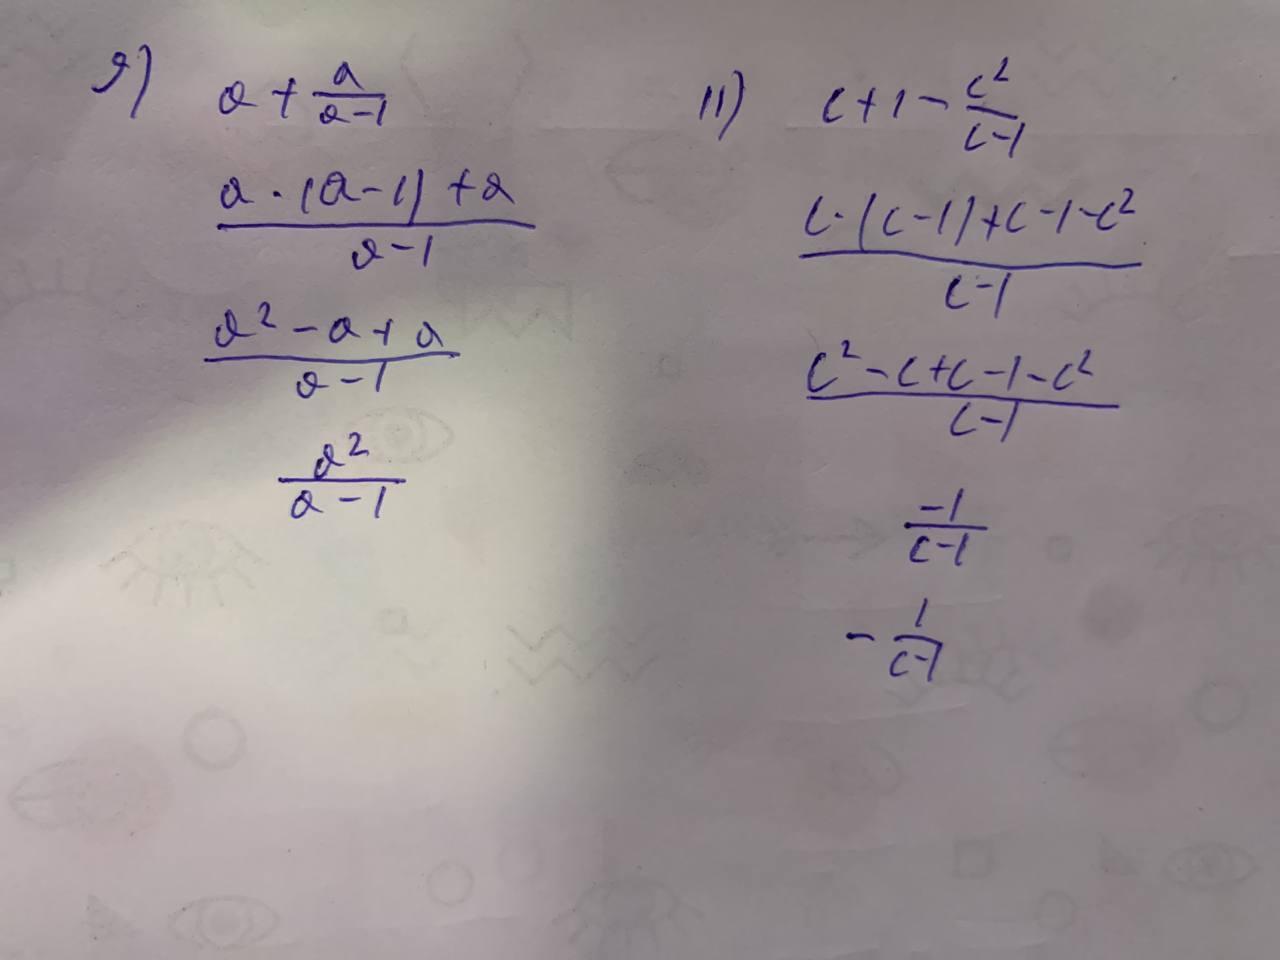 9) a + \frac{a}{a-1}
\frac{a \cdot (a-1) + a}{a-1}
\frac{a^2 - a + a}{a-1}
\frac{a^2}{a-1}
11) c + 1 - \frac{c^2}{c-1}
\frac{c \cdot (c-1) + c - 1 - c^2}{c-1}
\frac{c^2 - c + c - 1 - c^2}{c-1}
\frac{-1}{c-1}
- \frac{1}{c-1}